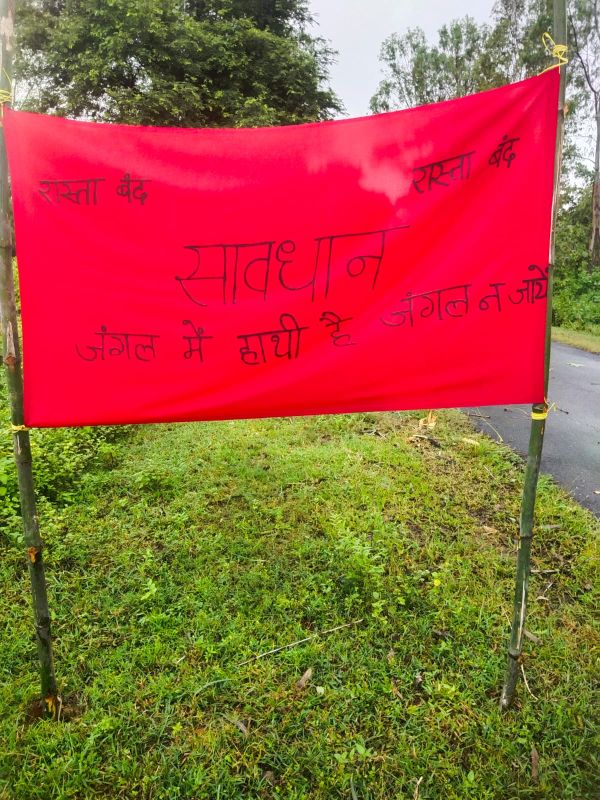 रास्ता बंद रास्ता बंद
सावधान
जंगल में हाथी है जंगल न जायें